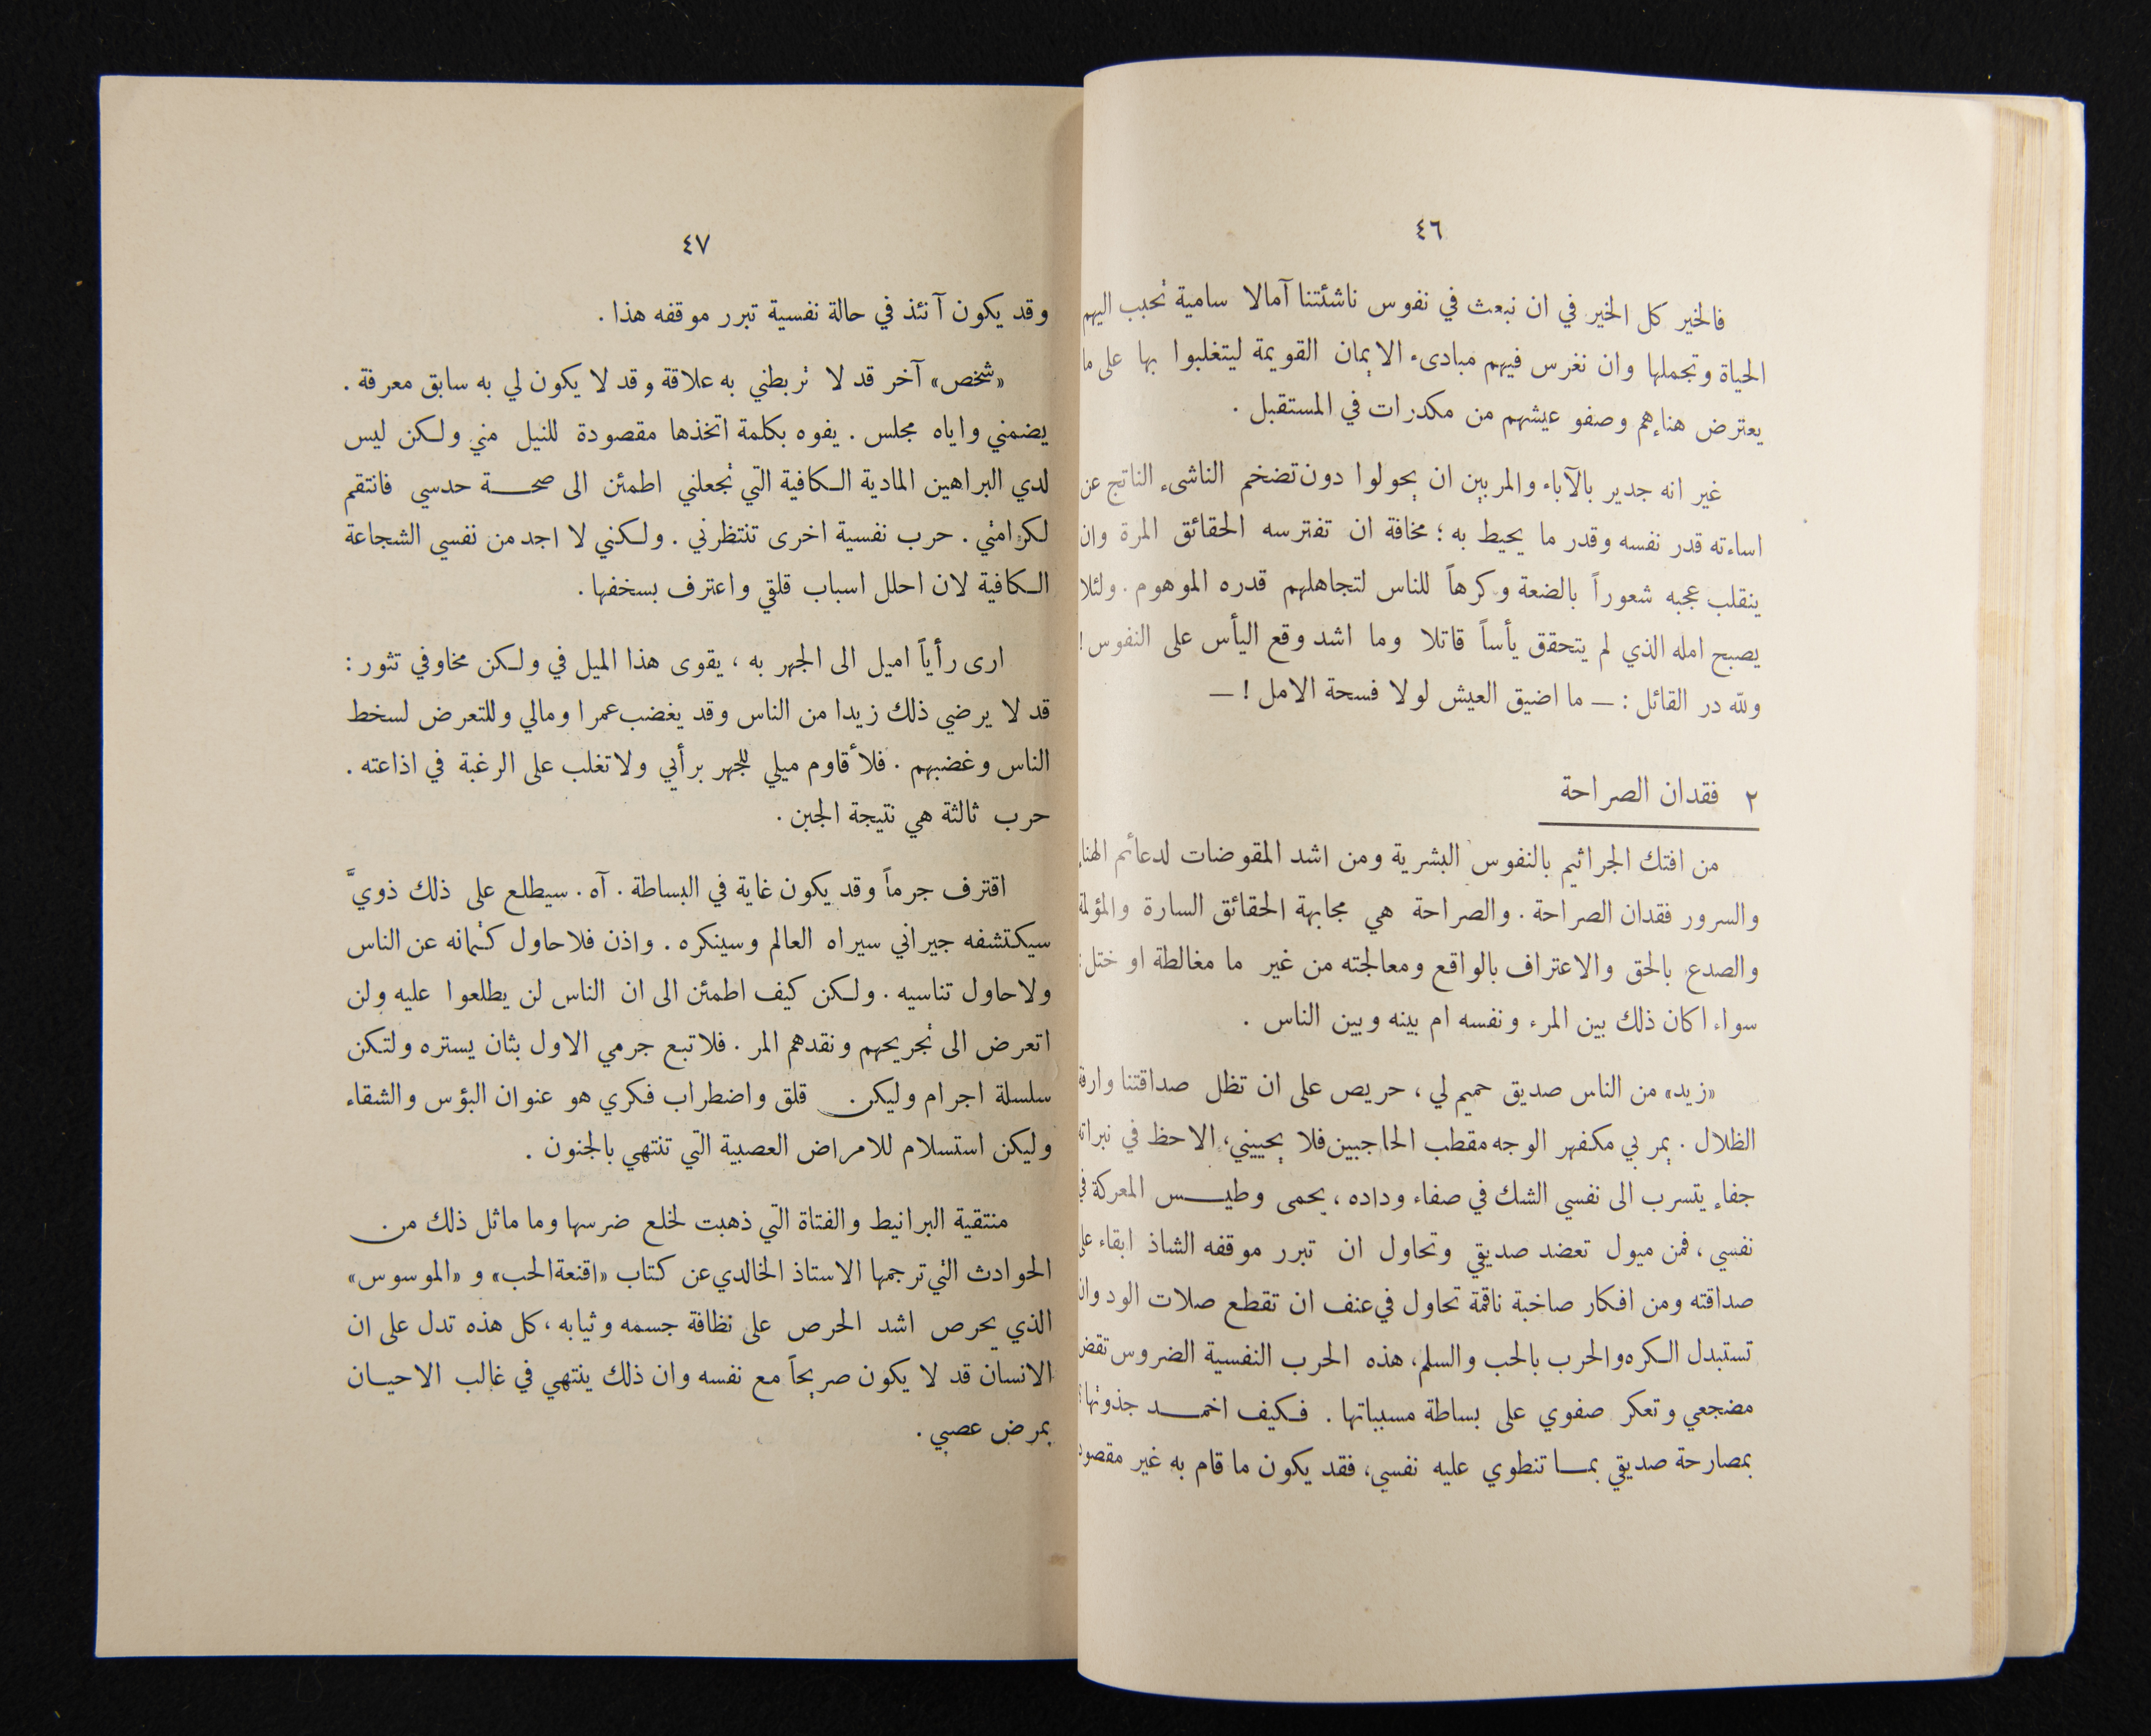 ٤٦
فالخير كل الخير في ان نبعث في نفوس ناشئتنا آمالا سامية تحبب اليهم
الحياة وتجملها وان نغرس فيهم مبادىء الايمان القويمة ليتغلبوا بها على ما
يعترض هناءهم وصفو عيشهم من مكدرات في المستقبل .
غير انه جدير بالآباء والمربين ان يحولوا دون تضخم الناشىء الناتج عن
اساءته قدر نفسه وقدر ما يحيط به ؛ مخافة ان تفترسه الحقائق المرة وان
ينقلب عجبه شعوراً بالضعة وكرهاً للناس لتجاهلهم قدره الموهوم . ولئلا
يصبح امله الذي لم يتحقق يأساً قاتلا وما اشد وقع اليأس على النفوس !
ولله در القائل : — ما اضيق العيش لولا فسحة الامل ! —
٢ فقدان الصراحة
من افتك الجراثيم بالنفوس البشرية ومن اشد المقوضات لدعائم الهناء
والسرور فقدان الصراحة . والصراحة هي مجابهة الحقائق السارة والمؤلمة
والصدع بالحق والاعتراف بالواقع ومعالجته من غير ما مغالطة او ختل :
سواء اكان ذلك بين المرء ونفسه ام بينه وبين الناس .
«زيد» من الناس صديق حميم لي ، حريص على ان تظل صداقتنا وارفة
الظلال . يمر بي مكفهر الوجه مقطب الحاجبين فلا يحييني ، الاحظ في نبراته
جفاء يتسرب الى نفسي الشك في صفاء وداده ، يحمى وطيس المعركة في
نفسي ، فمن ميول تعضد صديقي وتحاول ان تبرر موقفه الشاذ ابقاء على
صداقته ومن افكار صاخبة ناقمة تحاول في عنف ان تقطع صلات الود وان
تستبدل الكره والحرب بالحب والسلم ، هذه الحرب النفسية الضروس تقض
مضجعي وتعكر صفوي على بساطة مسبباتها . فكيف اخمد جذوتها ؟
بمصارحة صديقي بما تنطوي عليه نفسي ، فقد يكون ما قام به غير مقصود
٤٧
وقد يكون آنئذ في حالة نفسية تبرر موقفه هذا .
«شخص» آخر قد لا تربطني به علاقة وقد لا يكون لي به سابق معرفة .
يضمني واياه مجلس . يفوه بكلمة اتخذها مقصودة للنيل مني ولكن ليس
لدي البراهين المادية الكافية التي تجعلني اطمئن الى صحة حدسي فانتقم
لكرامتي . حرب نفسية اخرى تنتظرني . ولكني لا اجد من نفسي الشجاعة
الكافية لان احلل اسباب قلقي واعترف بسخفها .
ارى رأياً اميل الى الجهر به ، يقوى هذا الميل في ولكن مخاوفي تثور :
قد لا يرضي ذلك زيدا من الناس وقد يغضب عمرا ومالي وللتعرض لسخط
الناس وغضبهم . فلأقاوم ميلي للجهر برأيي ولاتغلب على الرغبة في اذاعته .
حرب ثالثة هي نتيجة الجبن .
اقترف جرماً وقد يكون غاية في البساطة . آه . سيطلع على ذلك ذويَّ
سيكتشفه جيراني سيراه العالم وسينكره . واذن فلاحاول كتمانه عن الناس
ولاحاول تناسيه . ولكن كيف اطمئن الى ان الناس لن يطلعوا عليه ولن
اتعرض الى تجريحهم ونقدهم المر . فلاتبع جرمي الاول بثان يستره ولتكن
سلسلة اجرام وليكن قلق واضطراب فكري هو عنوان البؤس والشقاء
وليكن استسلام للامراض العصبية التي تنتهي بالجنون .
منتقية البرانيط والفتاة التي ذهبت لخلع ضرسها وما ماثل ذلك من
الحوادث التي ترجمها الاستاذ الخالدي عن كتاب «اقنعة الحب» و «الموسوس»
الذي يحرص اشد الحرص على نظافة جسمه وثيابه ، كل هذه تدل على ان
الانسان قد لا يكون صريحاً مع نفسه وان ذلك ينتهي في غالب الاحيان
بمرض عصبي .